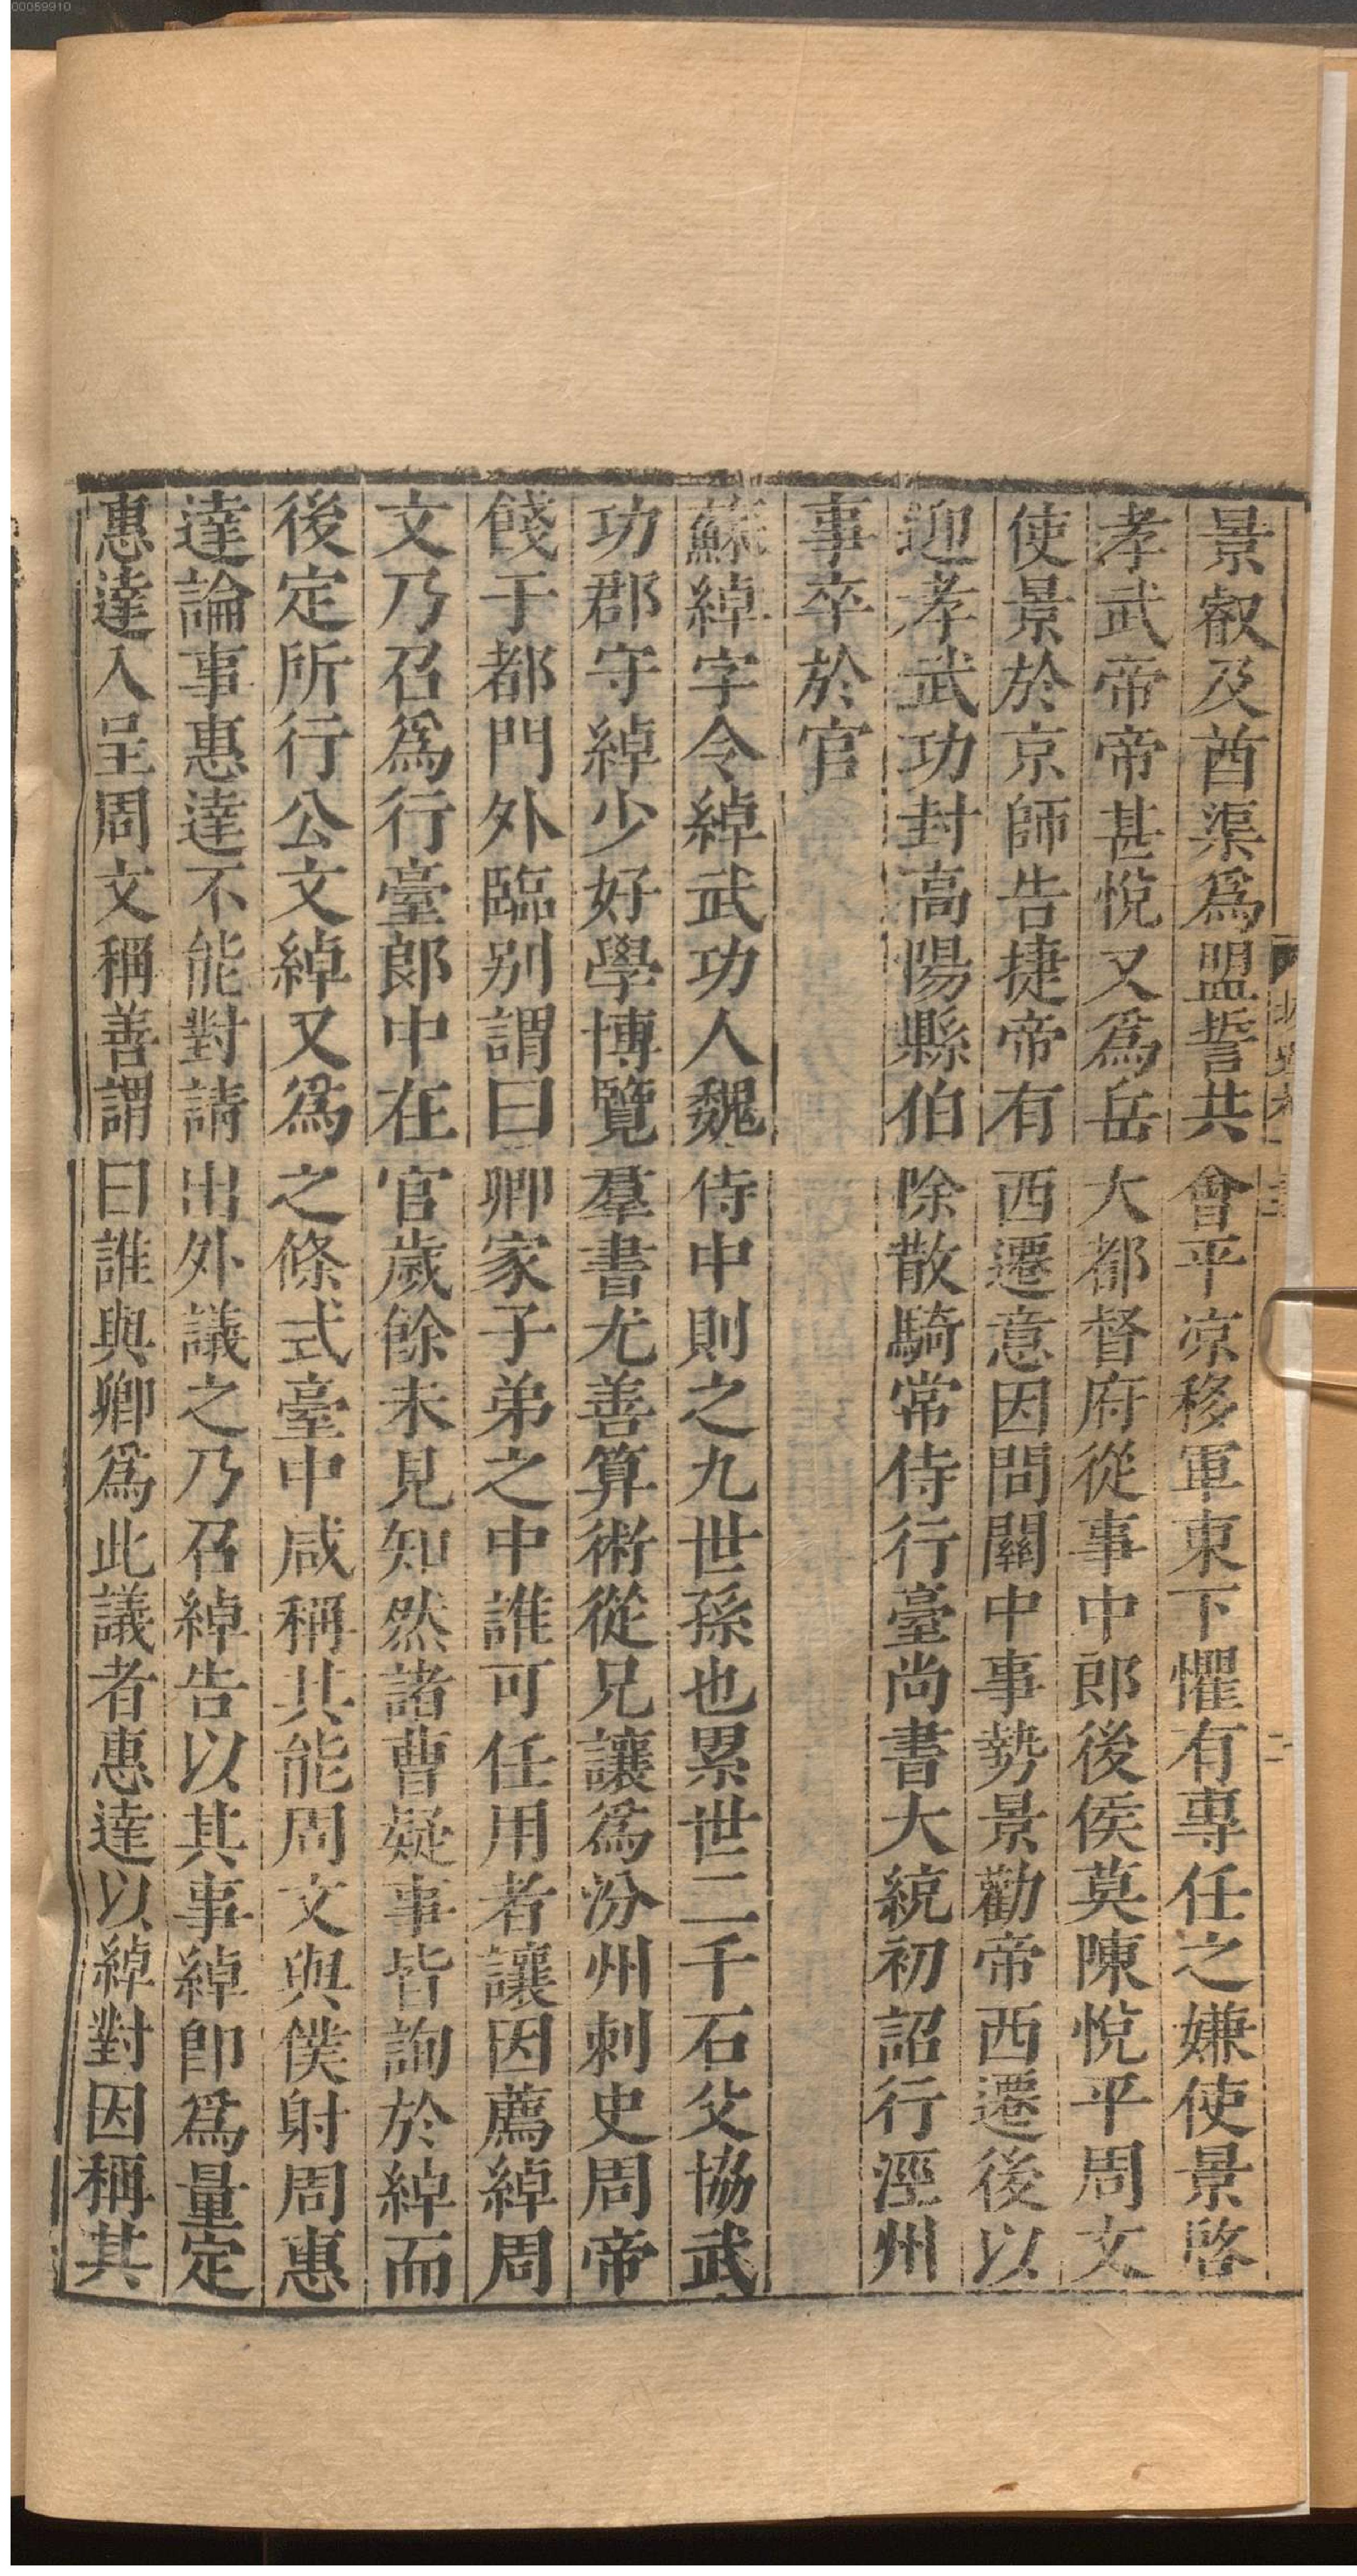 00059910
景叡及酋渠爲盟誓共會平凉移軍東下懼有專任之嫌使景啓
孝武帝帝甚悅又爲岳大都督府從事中郎後侯莫陳悅平周文
使景於京師告捷帝有西遷意因問關中事勢景勸帝西遷後以
迎孝武功封高陽縣伯除散騎常侍行臺尚書大統初詔行涇州
事卒於官
蘇綽字令綽武功人魏侍中則之九世孫也累世二千石父協武
功郡守綽少好學博覽羣書尤善算術從兄讓爲汾州刺史周帝
餞于都門外臨別謂曰卿家子弟之中誰可任用者讓因薦綽周
文乃召爲行臺郎中在官歲餘未見知然諸曹疑事皆詢於綽而
後定所行公文綽又爲之條式臺中咸稱其能周文與僕射周惠
達論事惠達不能對請出外議之乃召綽告以其事綽卽爲量定
惠達入呈周文稱善謂曰誰與卿爲此議者惠達以綽對因稱其